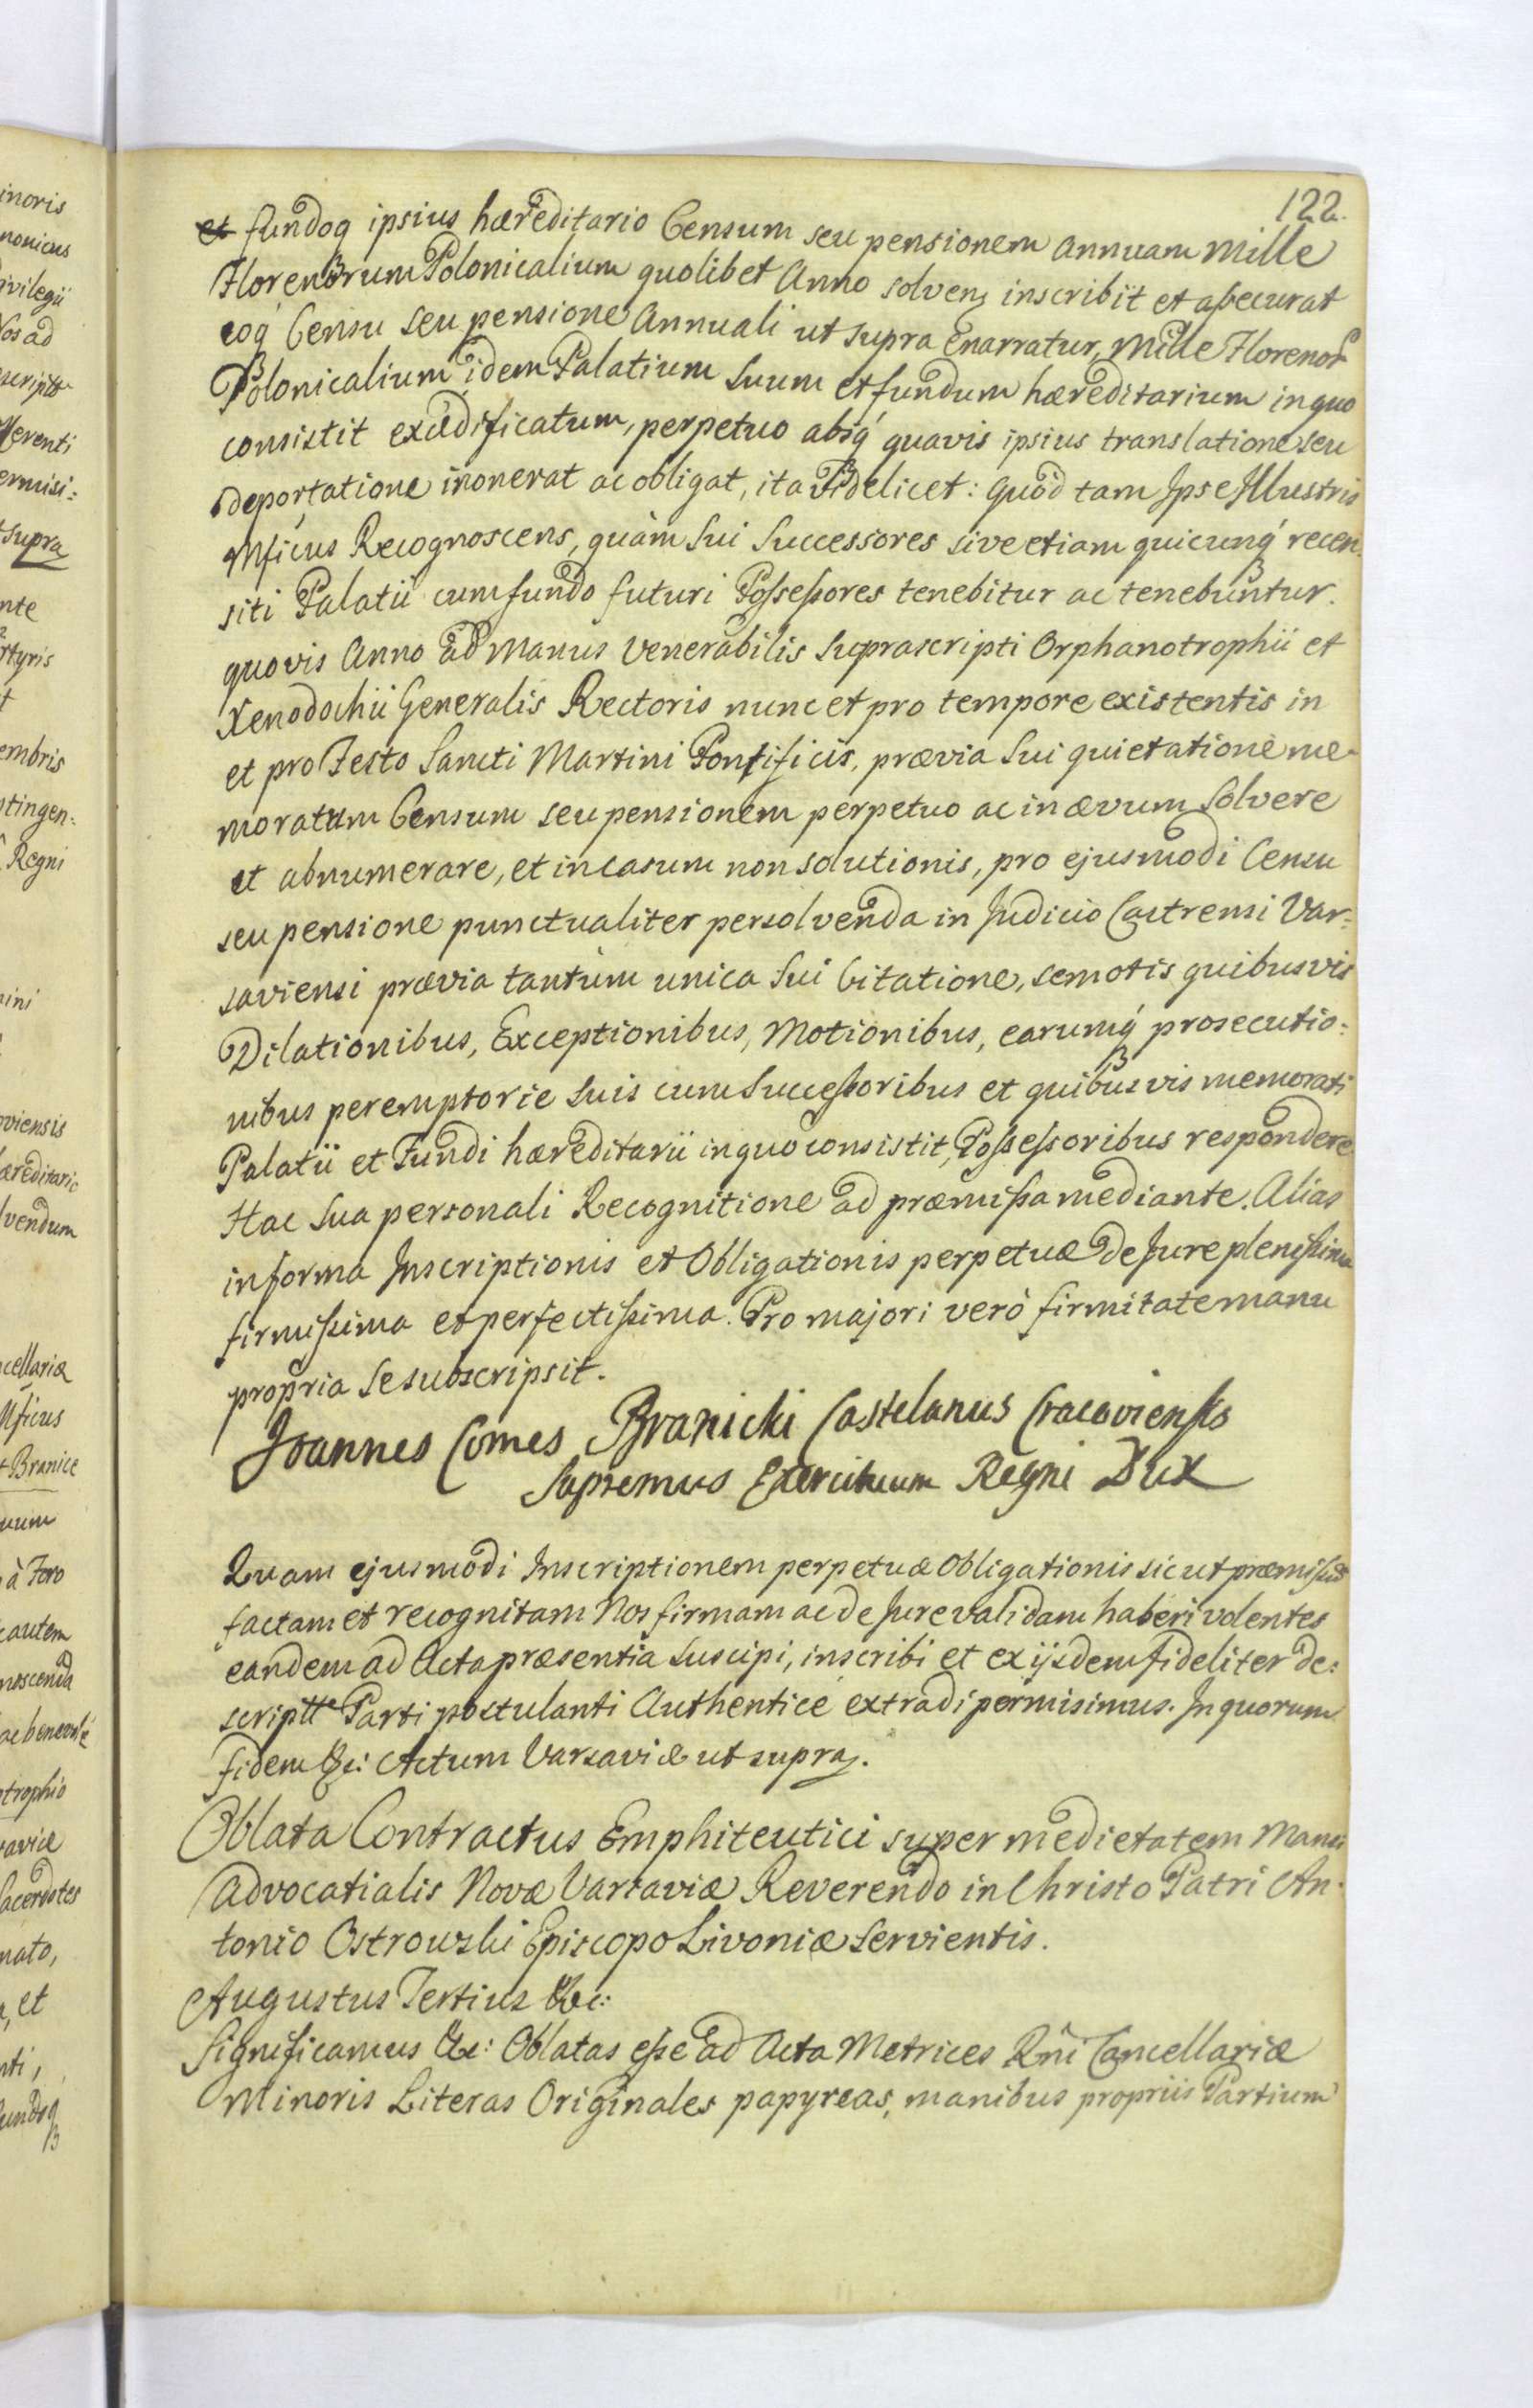 122.
et fundoq ipsius hæreditario Censum seu pensionem annuam mille
Florenorum Polonicalium quolibet Anno solven inscribit et assecurat
eoq Censu seu pensione Annuali ut supra enarratur, mille Florenor
Polonicalium idem Palatium suum et fundum hæreditarium in quo
consistit exædificatum, perpetuo absq quavis ipsius translatione seu
deportatione inonerat ac obligat, ita videlicet: quòd tam Ipse Illustris
Mficus Recognoscens, quàm sui Successores sive etiam quicunq recen
siti Palatii cum fundo futuri Possessores tenebitur ac tenebuntur.
quovis Anno ad manus Venerabilis suprascripti Orphanotrophii et
Xenodochii Generalis Rectoris nunc et pro tempore existentis in
et pro Festo Sancti Martini Pontificis, prævia sui quietatione me
moratum Censum seu pensionem perpetuo ac in ævum solvere
et abnumerare, et in casum non solutionis, pro ejusmodi Censu
seu pensione punctualiter persolvenda in Judicio Castrensi Var:
saviensi prævia tantùm unica sui Citatione, semotis quibusvis
Dilationibus, Exceptionibus, Motionibus, earumq prosecutio:
nibus peremptorie suis cum Successoribus et quibusvis memorati
Palatii et Fundi hæreditarii in quo consistit, Possessoribus respondere
Hac sua personali Recognitione ad præmissa mediante. Alias
in forma Inscriptionis et Obligationis perpetuæ de Jure plenissima
firmissima et perfectissima. Pro majori verò firmitate manu
propria se subscripsit.
Joannes Comes Branicki Castelanus Cracoviensis
Supremus Exercituum Regni Dux
Quam ejusmodi Inscriptionem perpetuæ Obligationis sicut præmissum
factam et recognitam Nos firmam ac de Jure validam haberi volentes
eandem ad Acta præsentia suscipi, inscribi et ex ijsdem fideliter de:
scriptte Parti postulanti Authenticè extradi permisimus. In quorum
fidem &c: Actum Varsaviæ ut supra.
Oblata Contractus Emphiteutici super medietatem Mansi
Advocatialis Novæ Varsaviæ Reverendo in Christo Patri An:
tonio Ostrowski Episcopo Livoniæ servientis.
Augustus Tertius &c:
Significamus &c: Oblatas esse ad Acta Metrices Rni Cancellariæ
Minoris Literas Originales papyreas, manibus propriis Partium
inoris
nonicus
rivilegii
Nos ad
ermisi:
supra
nte
rtyris
embris
stingen:
Regni
oviensis
æreditario
lvendum
cellariæ
Mficus
Branice
à Foro
autem
noscenda
trophio
saviæ
Sacerdotes
nato,
et
nti,
fundoq